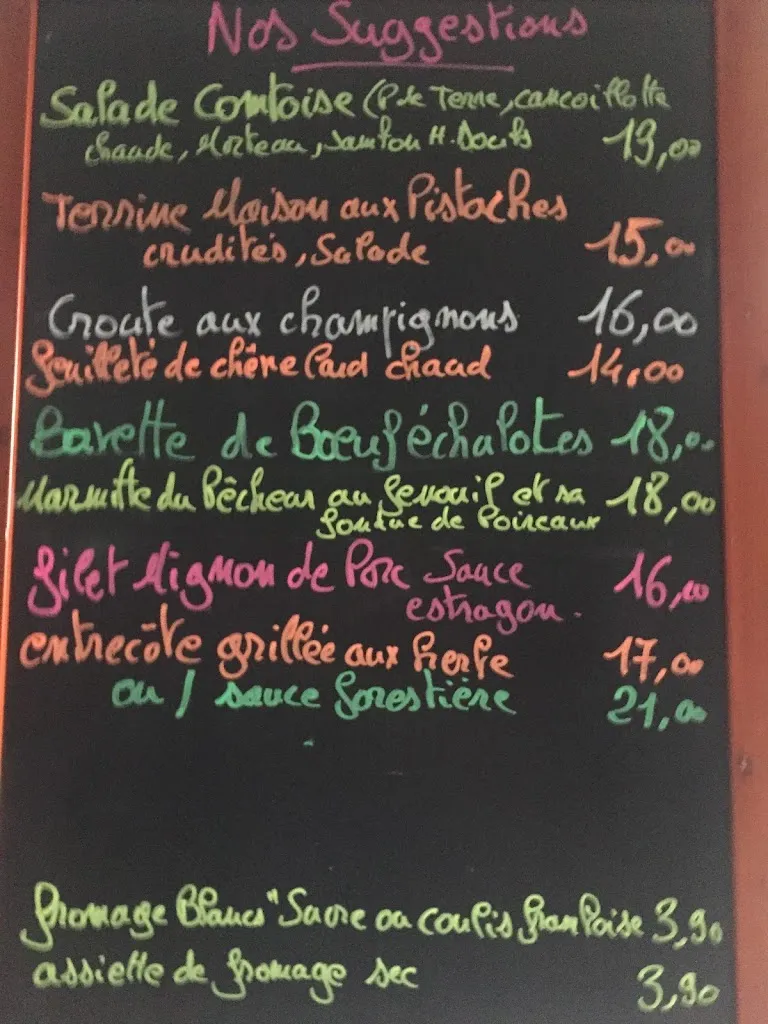 Nos Suggestions
Salade Comtoise (P. de Terre, cancoillotte
chaude, Morteau, Jambon H. Doubs 13,00
Terrine Maison aux Pistaches
crudités, Salade 15,00
Croute aux champignons 16,00
feuilleté de chèvre lard chaud 14,00
Bavette de Bœuf échalotes 18,00
Marmitte du Pêcheur au fenouil et sa 18,00
fondue de Poireaux
filet Mignon de Porc Sauce 16,00
estragon.
entrecôte grillée aux herbe 17,00
ou / sauce forestière 21,00
fromage Blancs "Sucre ou coulis framboise 3,90
assiette de fromage sec
3,90